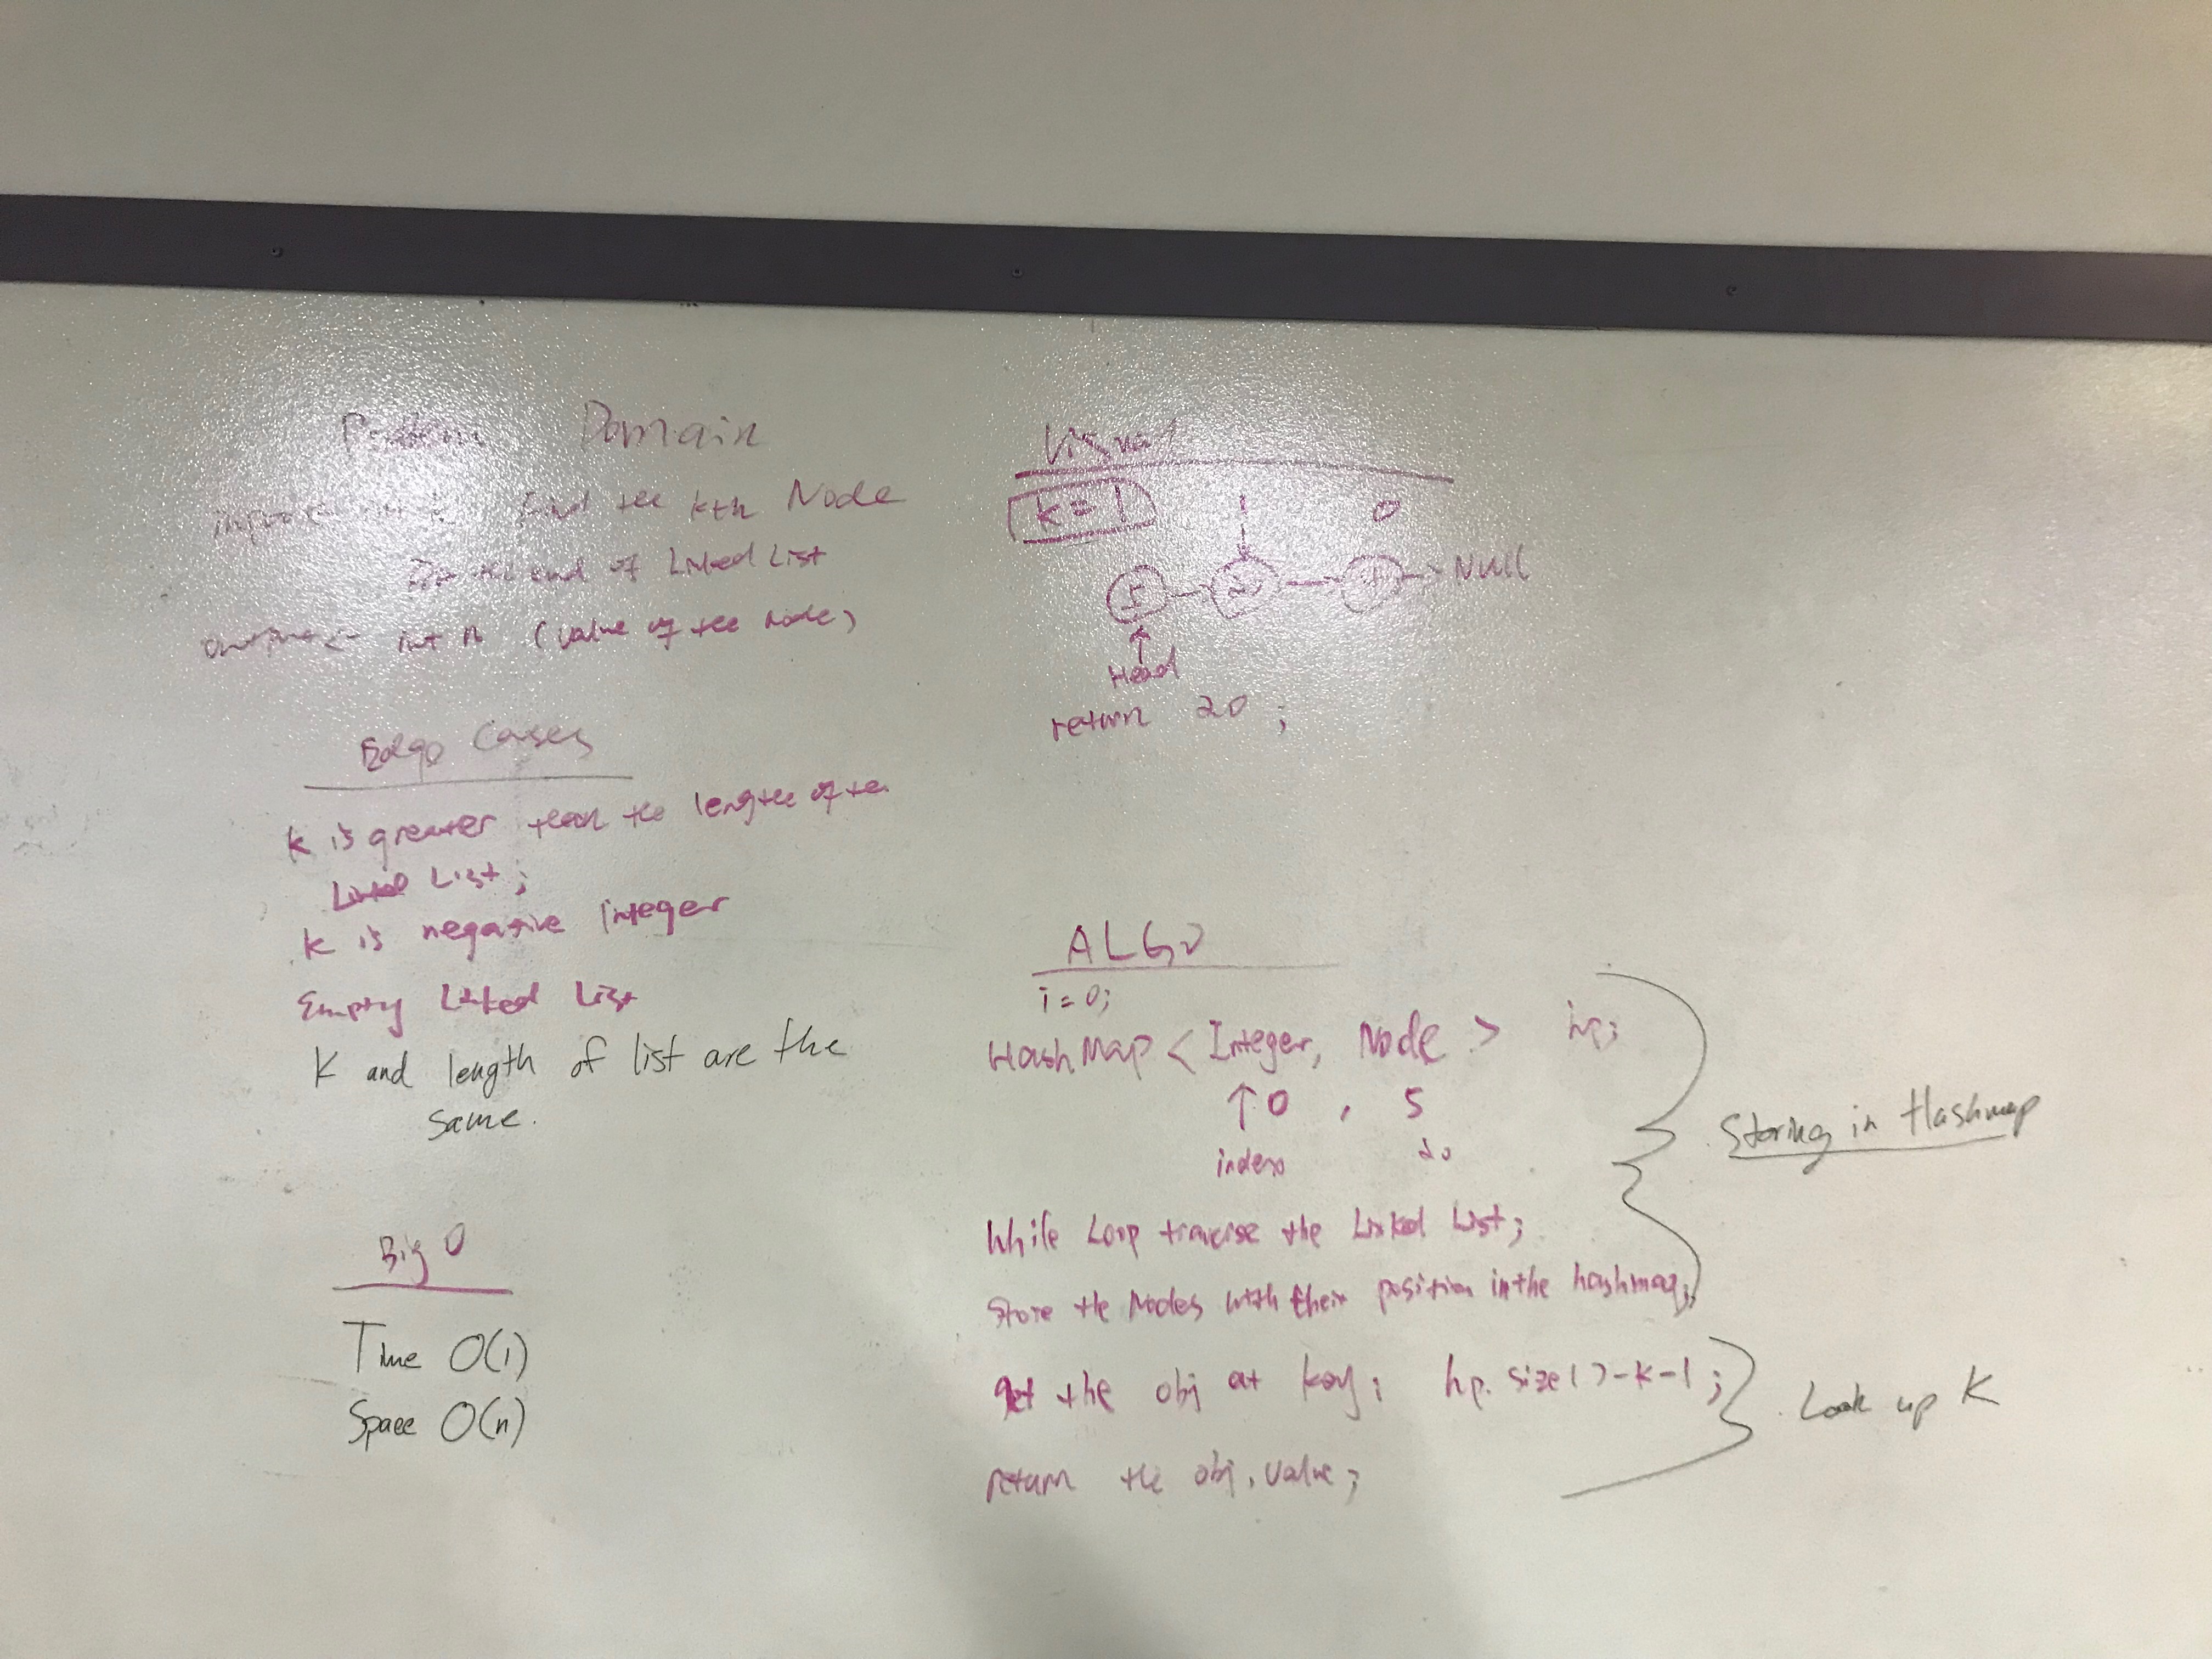 Problem Domain
input <- int k find the kth Node
the end of Linked List
output <- int n (value of the node)
Edge Cases
k is greater than the length of the
Linked List;
k is negative integer
Empty Linked List
K and length of list are the
same.
Big O
Time O(1)
Space O(n)
Visual
k = 1
1 0
5 20 Null
Head
return 20 ;
ALGO
i = 0;
HashMap < Integer, Node > hp;
0 , 5
index 20
While Loop traverse the Linked List;
Store the Nodes with their position in the hashmap;
get the obj at key; hp. size() - k - 1 ;
return the obj. value ;
Storing in Hashmap
Look up K